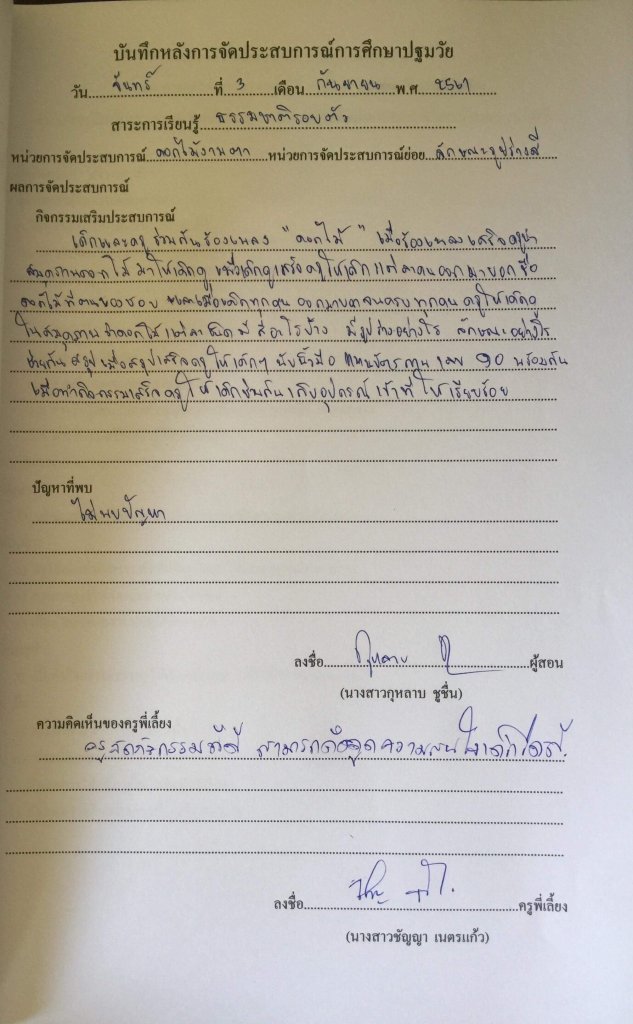 บันทึกหลังการจัดประสบการณ์การศึกษาปฐมวัย
วัน จันทร์ ที่ 3 เดือน กันยายน พ.ศ 2561
สาระการเรียนรู้ ธรรมชาติรอบตัว
หน่วยการจัดประสบการณ์ ดอกไม้งามตา หน่วยการจัดประสบการณ์ย่อย ลักษณะรูปร่างสี
ผลการจัดประสบการณ์
กิจกรรมเสริมประสบการณ์
เด็กและครู ร่วมกันร้องเพลง "ดอกไม้" เมื่อร้องเพลงเสร็จครูนำ
สมุดภาพดอกไม้ มาให้เด็กดู เมื่อเด็กดูเสร็จครูให้เด็กแต่ละคนออกมาบอกชื่อ
ดอกไม้ที่ตนเองชอบ และเมื่อเด็กทุกคน ออกมา ครบทุกคน ครูให้เด็กดู
ในสมุดภาพ ว่าดอกไม้ แต่ละชนิด มี สีอะไรบ้าง มีรูปร่างอย่างไร ลักษณะอย่างไร
ช่วยกันสรุป เมื่อสรุปเสร็จครูให้เด็กๆ นับนิ้วมือ เลข 10 พร้อมกัน
เมื่อทำกิจกรรมเสร็จครูให้เด็กช่วยกันเก็บอุปกรณ์ เข้าที่ ให้เรียบร้อย
ปัญหาที่พบ
ไม่พบปัญหา
ลงชื่อ กุหลาบ ผู้สอน
(นางสาวกุหลาบ ชูชื่น)
ความคิดเห็นของครูพี่เลี้ยง
ครูจัดกิจกรรมได้ดี สามารถดึงดูดความสนใจเด็กได้ดี
ลงชื่อ ครูพี่เลี้ยง
(นางสาวชัญญา เนตรแก้ว)